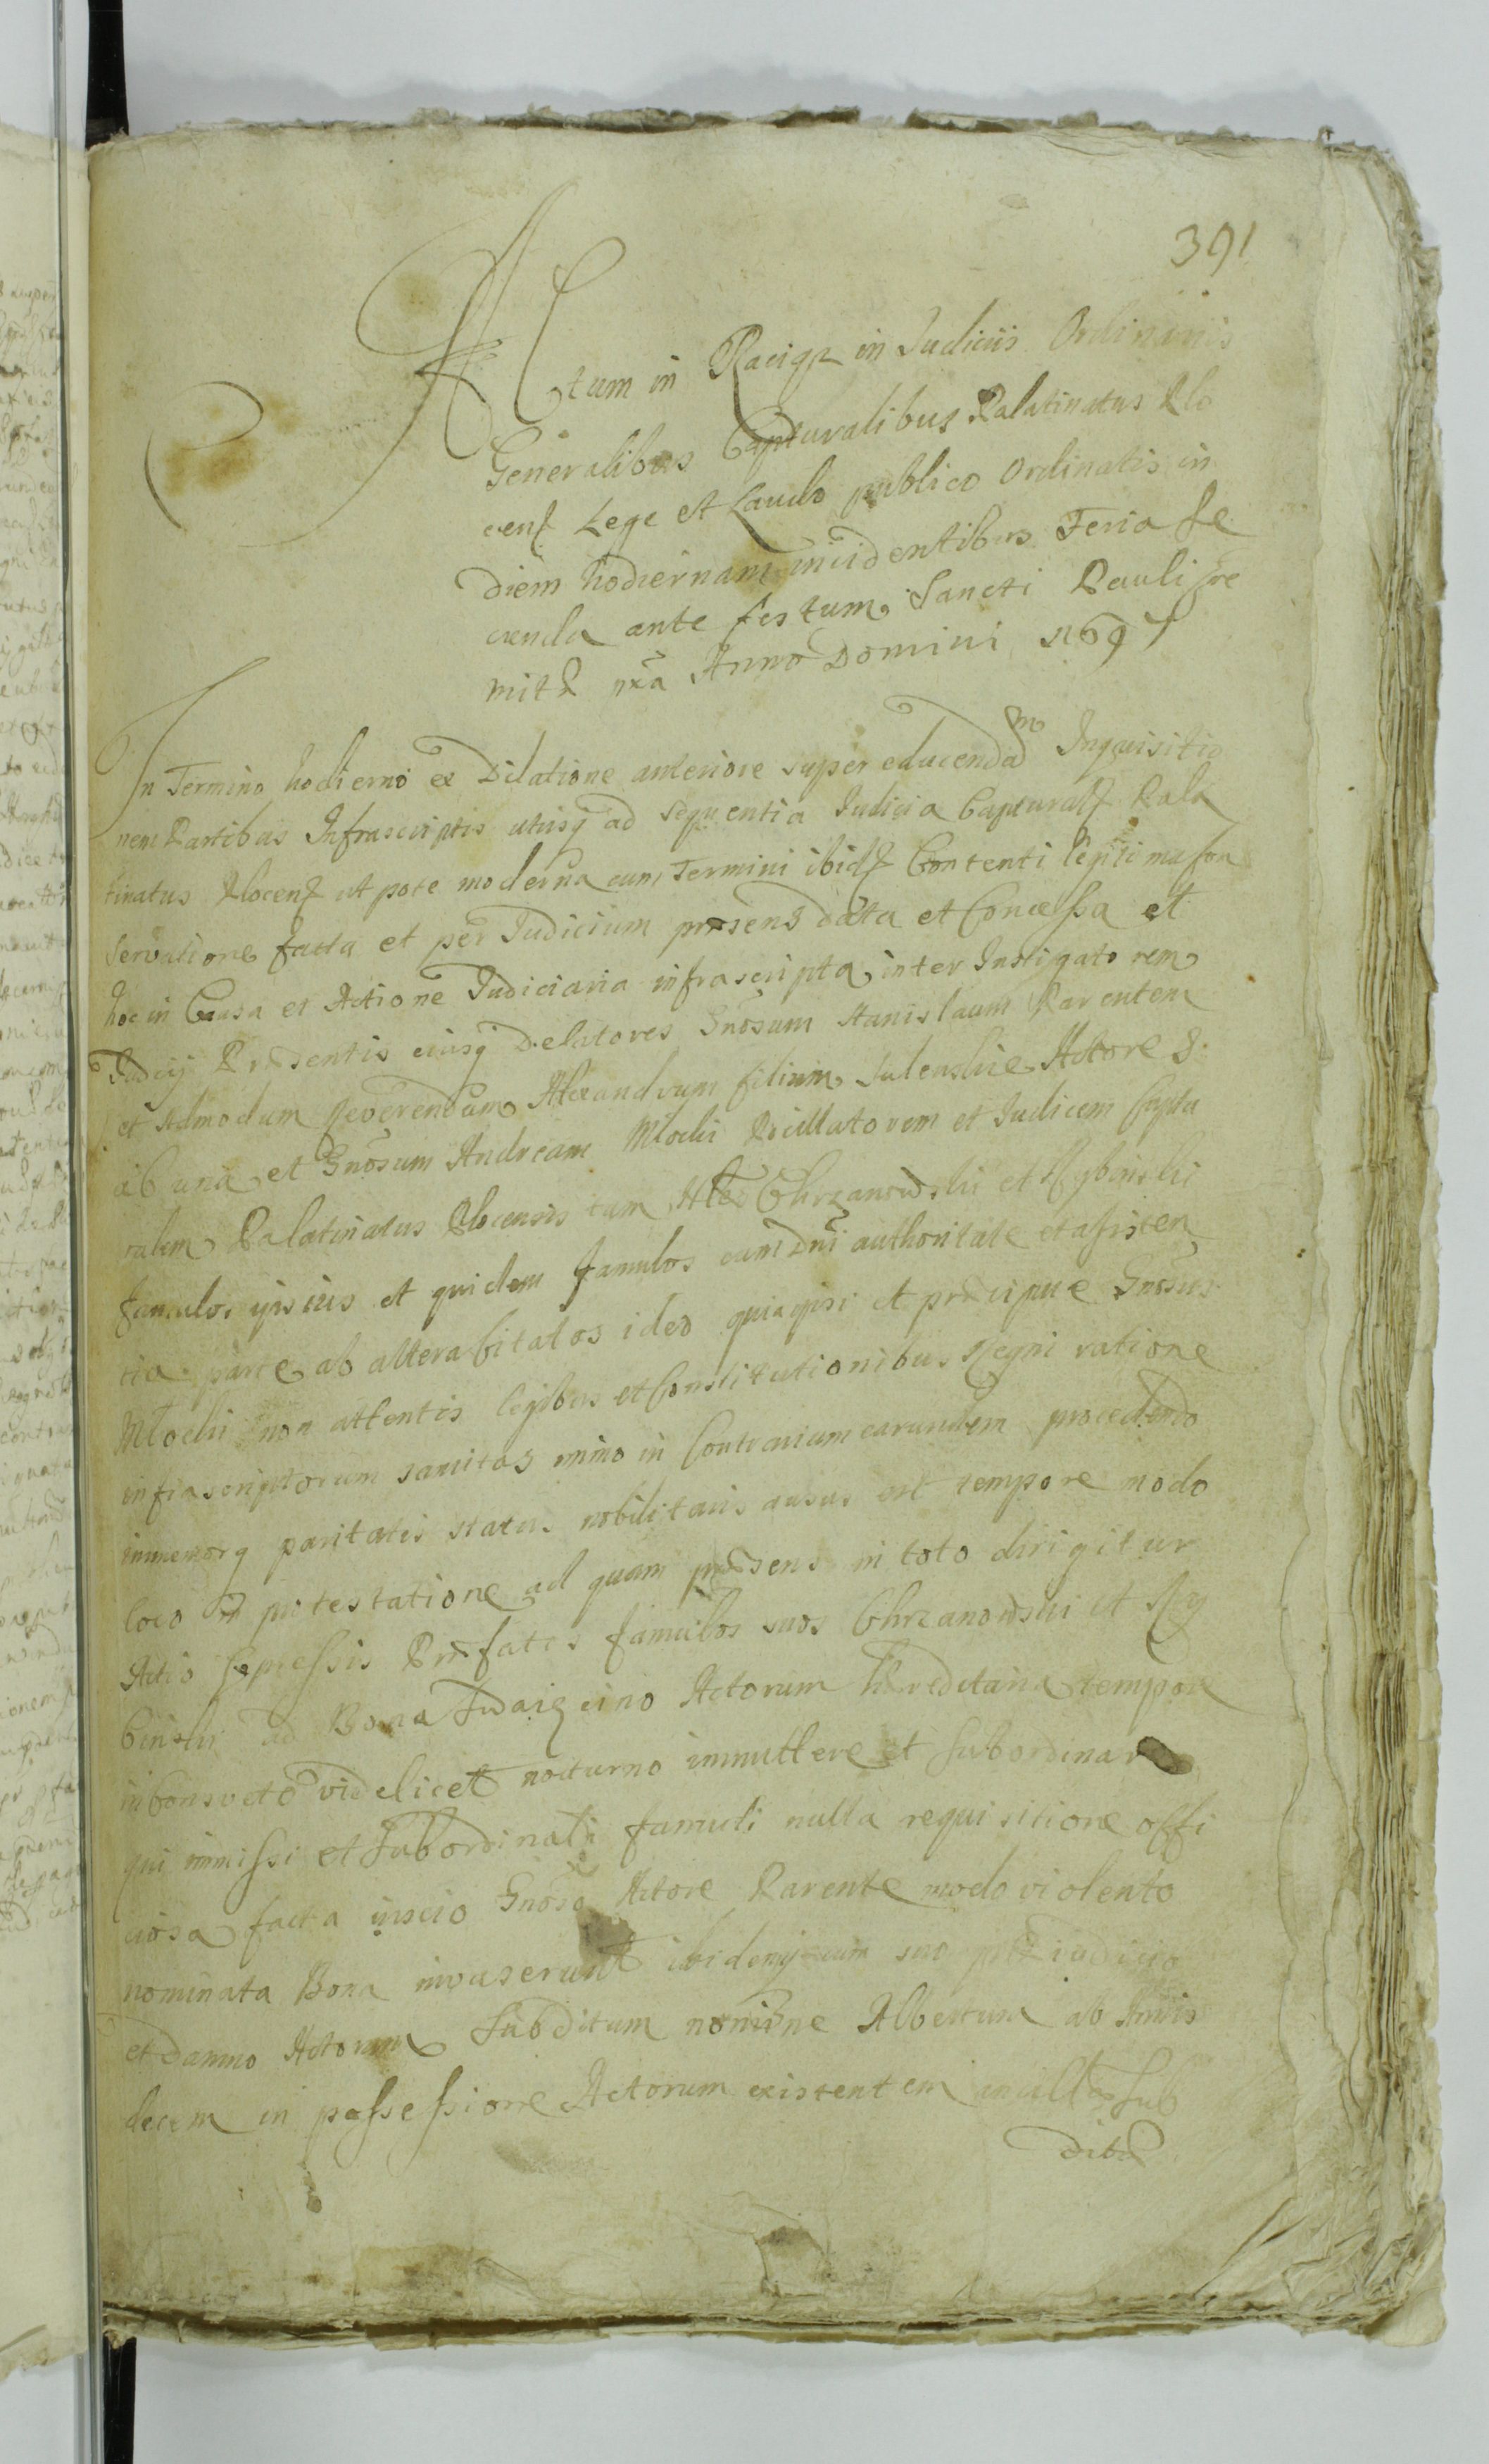 391
Actum in Raciąż in Judiciis Ordinariis
Generalibus Capturalibus Palatinatus Plo
cens Lege et Laudo publico Ordinatis in
Diem hodiernam incidentibus Feria Se
cunda ante festum Sancti Pauli
Anno Domini 1697
In Termino hodierno ex Dilatione anteriore super educendam Inquisitio
nem Partibus Infrascriptis utrisq ad sequentia Judicia Captural Pala
tinatus Plocens ut pote moderna cum Termini ibid Contenti legitima Con
servatione facta et per Judicium præsens data et Concessa et
hoc in Causa et Actione Judiciaria infrascripta inter Instigatorem
Judicij Præsentis eiusq Delatores Gnosum Stanislaum Parentem
et Admodum Reverendum Alexandrum filium Actores
ab una et Gnosum Andream Mlocki et Judicem Captu
ralem Palatinatus Plocensis tum Chrzanowski et Rybinski
famulos ipsius et quidem famulos cum Dni authoritate et assisten
tia parte ab altera citatos ideo quia ipsi et præcipue Gnosus
Mlocki non attentis legibus et Constitutionibus Regni ratione
infrascriptorum sancitas immo in Contrarium earundem procedendo
immemor paritatis status nobilitaris ausus est tempore modo
loco in protestatione ad quam præsens in toto dirigitur
Actio expressis Præfatos famulos suos Chrzanowski et Ry
binski ad Bona Actorum hæreditaria tempore
inconsveto videlicet nocturno immittere et subordinare
qui immissi et Subordinati famuli nulla requisitione offi
ciosa facta inscio Gnoso Actore Parente modo violento
nominata Bona invaserunt ibidemq cum suo præiudicio
et damno Actorum Subditum nomine Albertum ab Annis
decem in possessione Actorum existentem Sub
dit